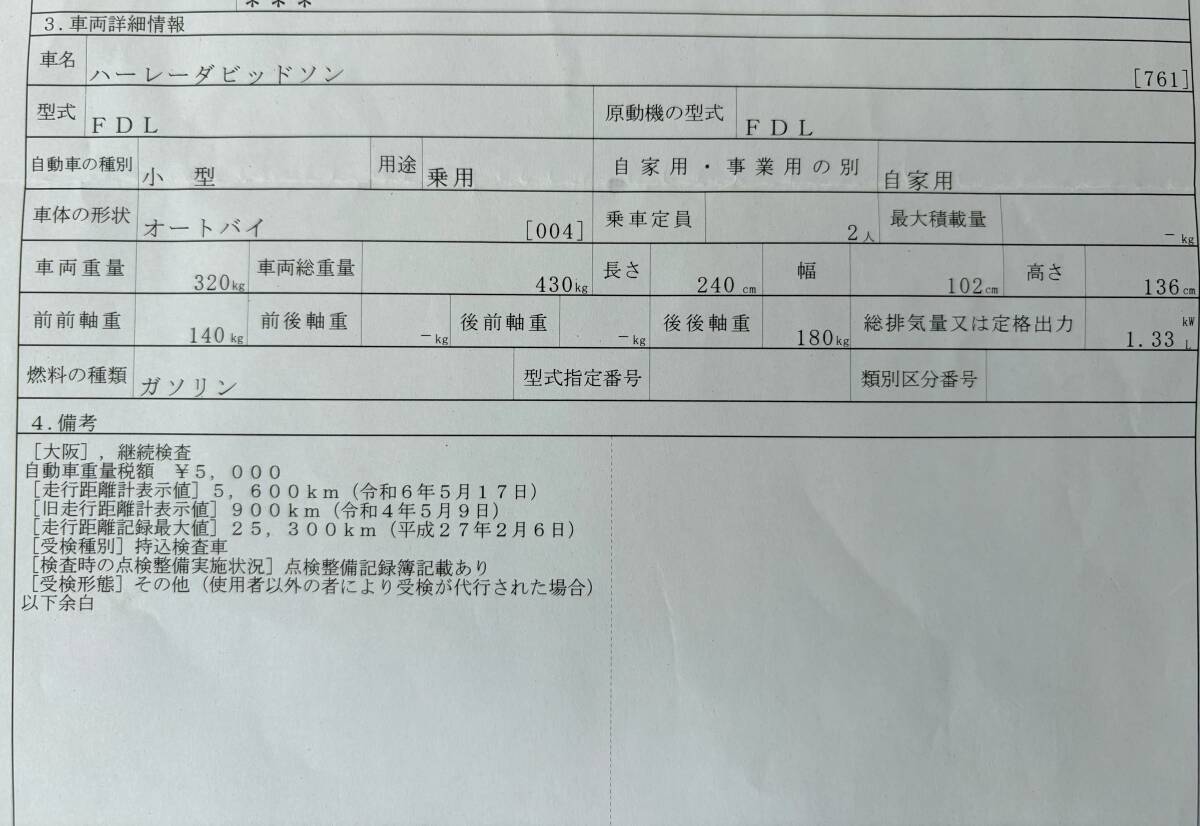 ＊＊＊
3.車両詳細情報
車名 ハーレーダビッドソン [761]
型式 ＦＤＬ 原動機の型式 ＦＤＬ
自動車の種別 小 型 用途 乗用 自家用・事業用の別 自家用
車体の形状 オートバイ [004] 乗車定員 2人 最大積載量 －kg
車両重量 320kg 車両総重量 430kg 長さ 240cm 幅 102cm 高さ 136cm
前前軸重 140kg 前後軸重 －kg 後前軸重 －kg 後後軸重 180kg 総排気量又は定格出力 1.33 kW L
燃料の種類 ガソリン 型式指定番号 類別区分番号
4.備考
［大阪］，継続検査
自動車重量税額　￥５，０００
［走行距離計表示値］５，６００ｋｍ（令和６年５月１７日）
［旧走行距離計表示値］９００ｋｍ（令和４年５月９日）
［走行距離記録最大値］２５，３００ｋｍ（平成２７年２月６日）
［受検種別］持込検査車
［検査時の点検整備実施状況］点検整備記録簿記載あり
［受検形態］その他（使用者以外の者により受検が代行された場合）
以下余白